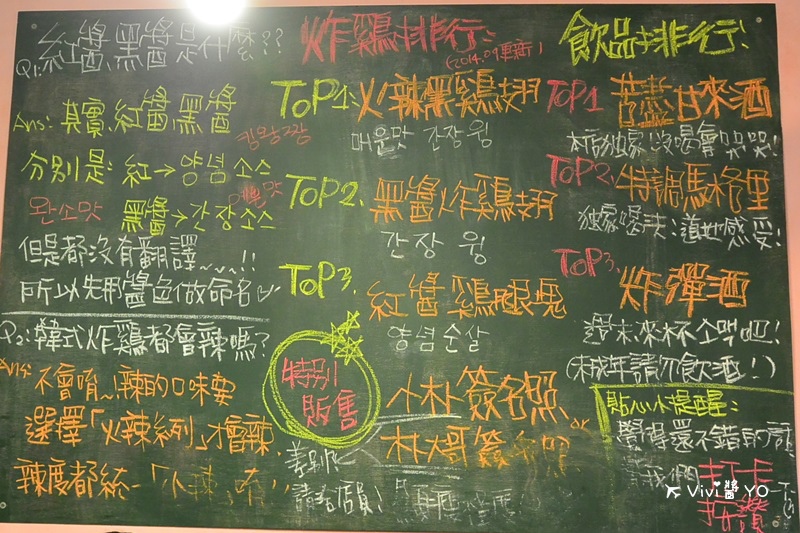 Q1: 紅醬、黑醬是什麼??
Ans: 其實,紅醬黑醬
分別是: 紅→양념소스
완소맛
黑醬→간장소스
但是都沒有翻譯~~!!
所以先用醬色做命名
Q2: 韓式炸鷄都會辣嗎?
Ans: 不會唷~辣的口味要
選擇「火辣系列」才會辣
辣度都統一「小辣」唷!!
炸鷄排行!
(2014.09更新)
TOP1: 火辣黑鷄翅
매운맛 간장 윙
TOP2. 黑醬炸鷄翅
간장 윙
TOP3. 紅醬鷄腿塊
양념순살
特別
販售
小朴簽名照
林大哥簽名照
請洽店員!
飲品排行!
TOP1 苦盡甘來酒
本店獨家 沒喝會哭哭!
TOP2. 特調馬格里
獨家喝法:道地感受!
TOP3. 炸彈酒
週末來杯小啤吧!
(未成年請勿飲酒!)
貼心小提醒:
覺得還不錯的話
請我們打卡
按讚
Vivi醬 YO